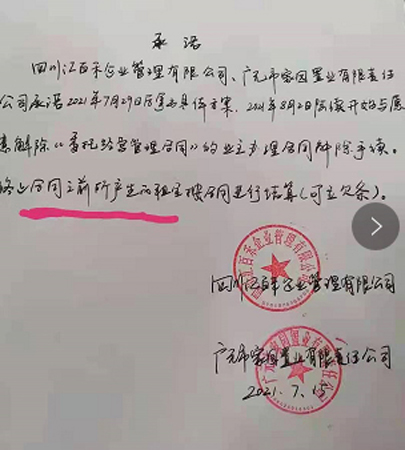 承诺
四川江百禾企业管理有限公司、广元市家园置业有限责任
公司承诺2021年7月29日后定出具体方案,2021年8月2日陆续开始与愿
意解除《委托经营管理合同》的业主办理合同解除手续。
终止合同之前所产生的租金按合同进行结算(可立欠条)。
四川江百禾企业管理有限公司
广元市家园置业有限责任公司
2021.7.15